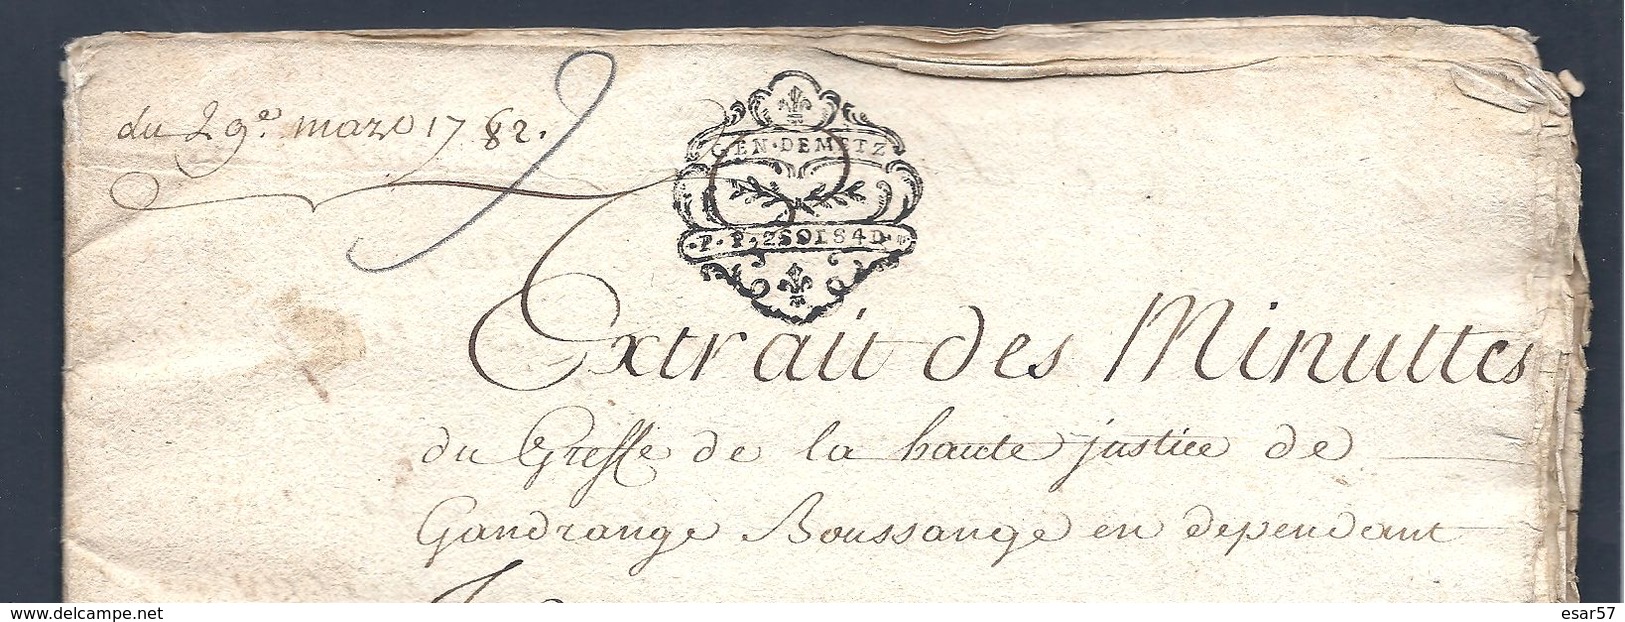 du 29.e mars 1782.
GEN·DEMETZ
Extrait des Minuttes
du Greffe de la haute justice de
Gandrange Boussange en dependant
www.delcampe.net
esar57